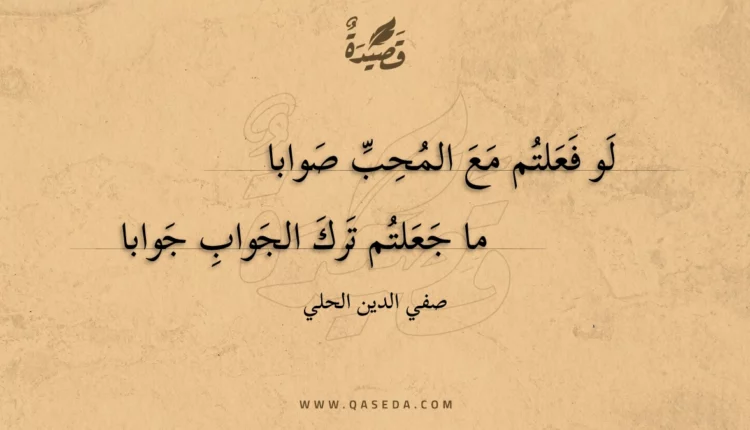 قَصِيْدَةٌ
لَو فَعَلتُم مَعَ المُحِبِّ صَوابا
ما جَعَلتُم تَركَ الجَوابِ جَوابا
صفي الدين الحلي
WWW.QASEDA.COM